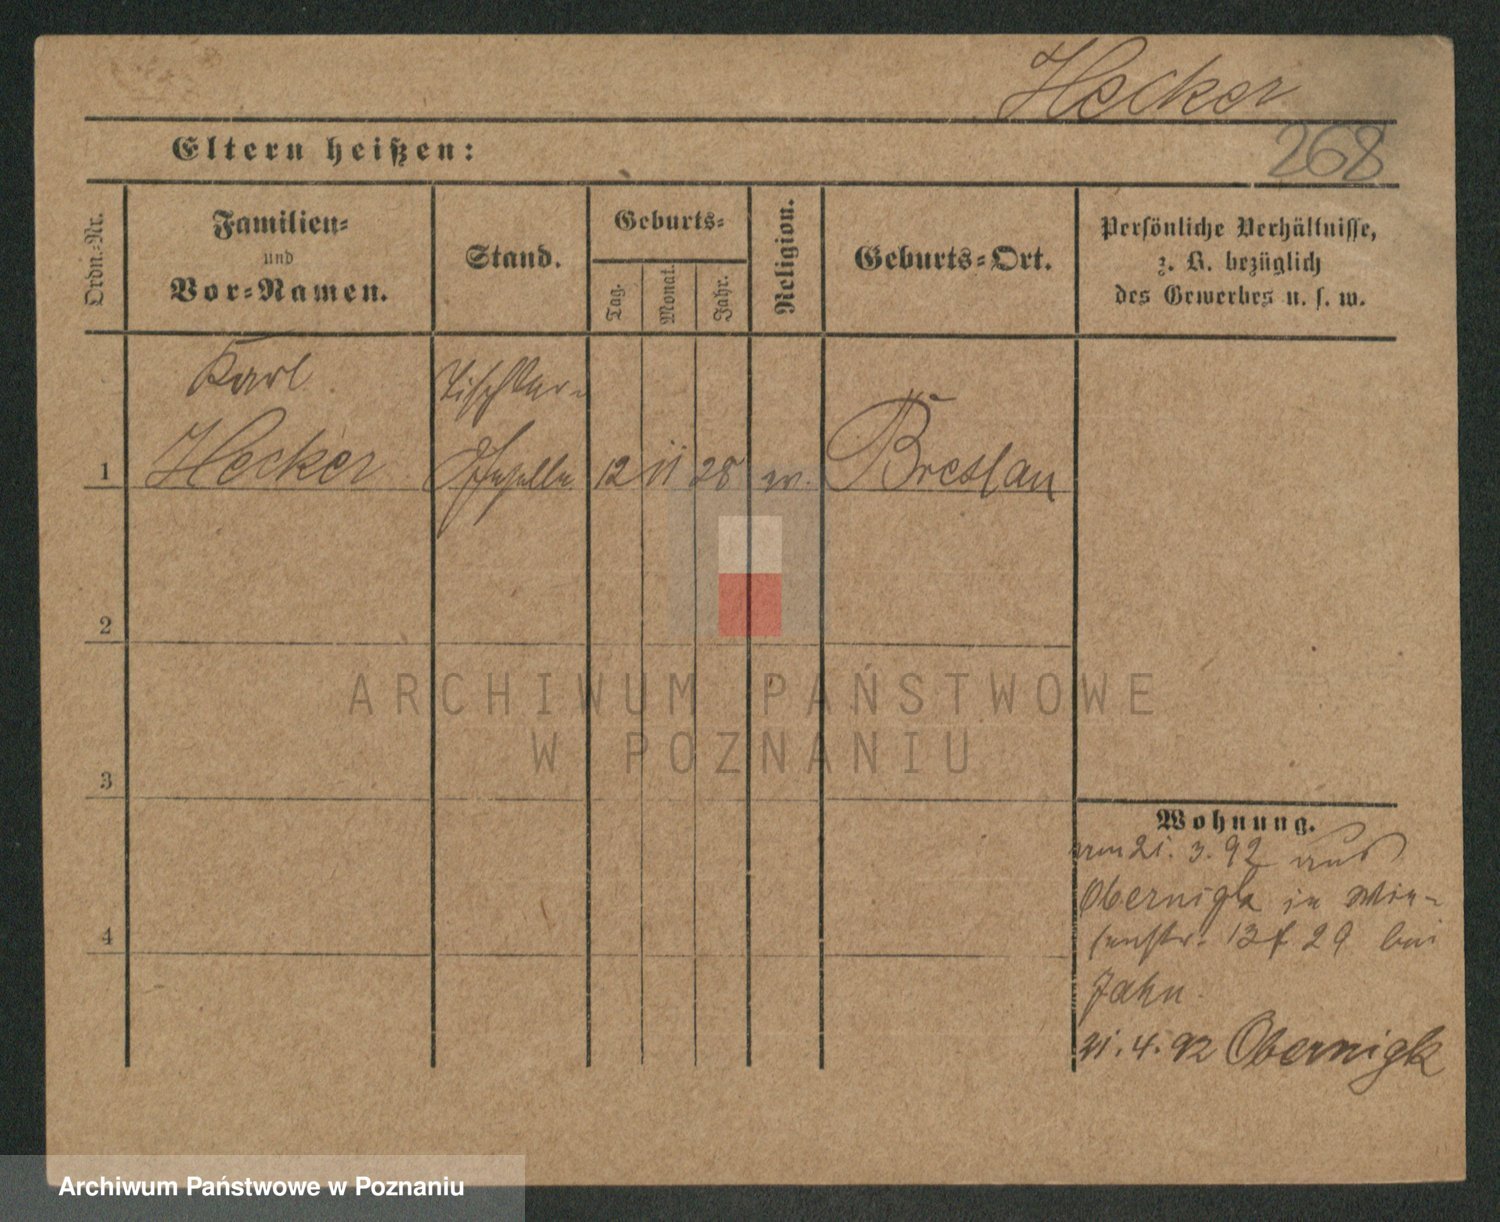 Hecker
268
Eltern heißen:
Ordn.-Nr.
Familien-
und
Vor-Namen.
Stand.
Geburts-
Tag.
Monat.
Jahr.
Religion.
Geburts-Ort.
Persönliche Verhältnisse,
z. B. bezüglich
des Gewerbes u. s. w.
Karl
Tischler-
1
Hecker
Geselle
12
11
28
ev.
Breslau
2
ARCHIWUM PAŃSTWOWE
W POZNANIU
3
Wohnung.
am 21. 3. 92 aus
Obernigk in Wie-
senstr. 13 29 bei
Jahn.
4
21. 4. 92 Obernigk
Archiwum Państwowe w Poznaniu